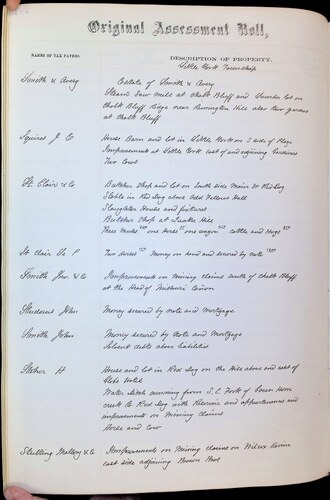 Original Assessment Roll,
NAMES OF TAX PAYERS.
DESCRIPTION OF PROPERTY.
Little York Township
Smith & Avery
Estate of Smith & Avery
Steam Saw mill at Chalk Bluff and Lumber lot on
Chalk Bluff Ridge near Remington Hill also two
at Chalk Bluff
Squires J
House Barn and lot in Little York on S side of Plaza
Improvements at Little York east of and adjoining Gardners
Two Cows
St. Clair & Co
Butcher Shop and lot on South side Main St Red Dog
Stable in Red Dog above Odd Fellows Hall
Slaughter House and fixtures
Butcher Shop at Quaker Hill
Three Mules one Horse one wagon cattle and Hogs
St Clair
Two Horses Money on hand and secured by note
Smith & Co
Improvements on Mining claims south of Chalk Bluff
at the Head of Missouri Cañon
John
Money secured by note and Mortgage
Smith John
Money secured by Note and Mortgage
Solvent debts above liabilities
H
House and lot in Red Dog on the Hill above and east of
Odd Hotel
Water Ditch running from S. E. Fork of
creek to Red Dog with Reservoir and appurtenances and
improvements on Mining claims
Horse and cow
Mallory & Co
Improvements on Mining claims on Wilcox Ravine
east side adjoining Brown Bros